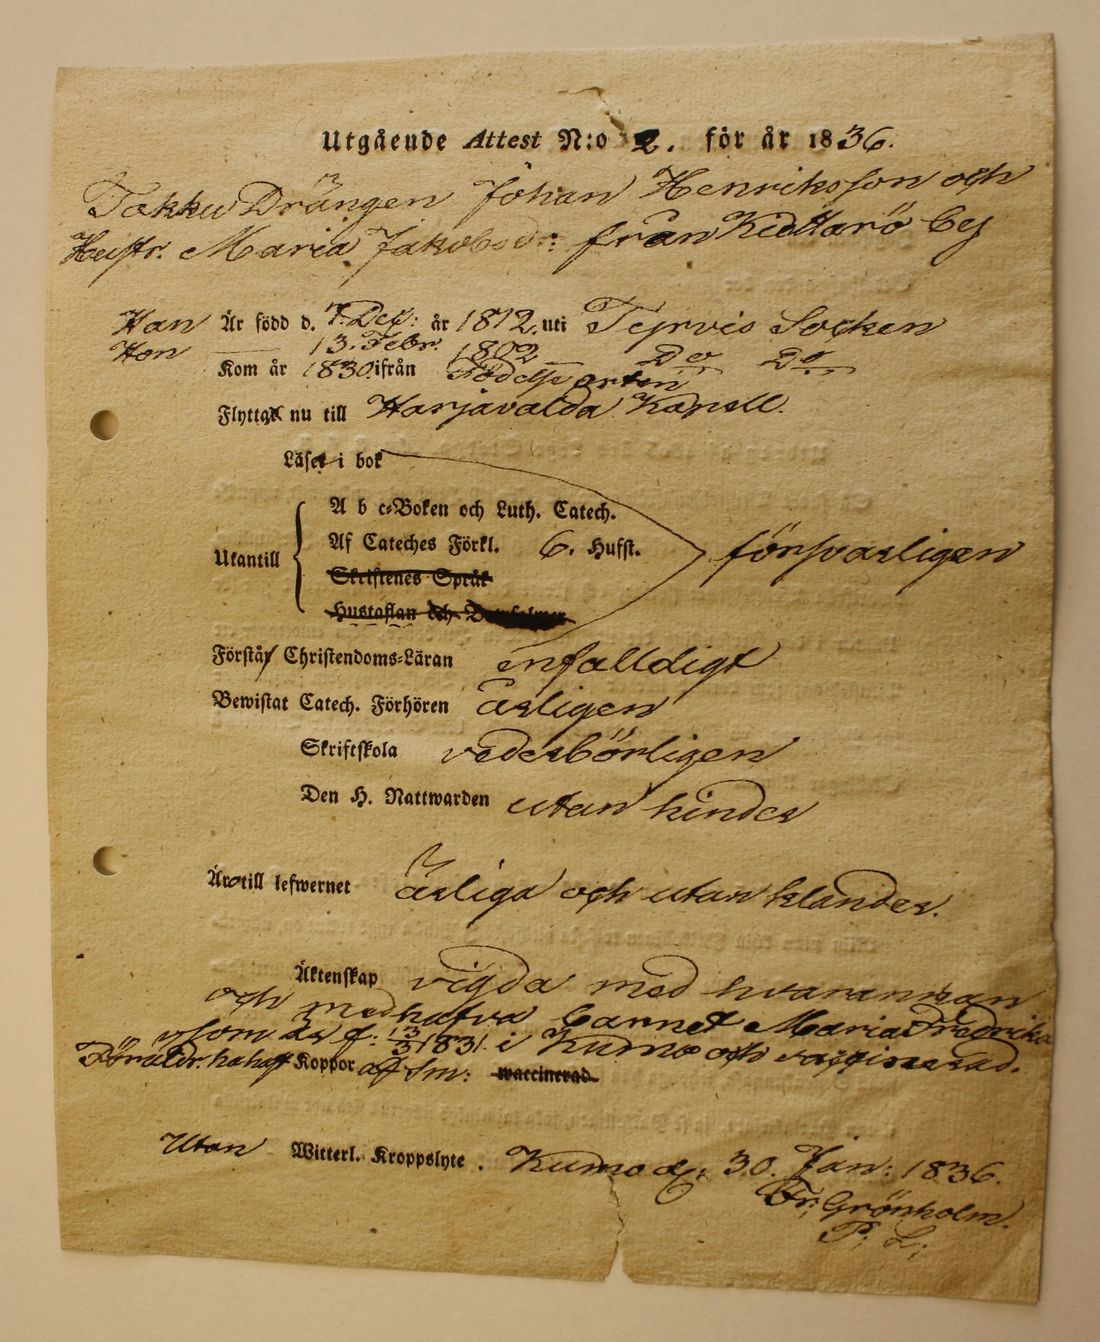 Utgående Attest N:o 2. för år 1836.
Takku Drängen Johan Henriksson och
Hustr. Maria Jakobsdr: från Kiettarö by
Han Är född d. 7. Dec: år 1812. uti Tyrvis Socken
Hon — 13. Febr. 1802 — Do Do
Kom år 1830. ifrån Födelse orten
Flyttar nu till Harjavalda Kapell.
Läser i bok
A b c-Boken och Luth. Catech.
Utantill Af Cateches Förkl. 6. Hufst. försvarligen
Skriftenes Språk
Hustaflan och
Förstår Christendoms-Läran enfalldigt
Bewistat Catech. Förhören årligen
Skriftskola vederbörligen
Den H. Nattwarden utan hinder
Äro till lefwernet ärliga och utan klander.
Äktenskap vigda med hvarannan
och medhafva barnet Maria Fredrika
som är f: 13/3 1831. i Kumo och vaccinerad.
Föräldr. hahaft Koppor af sm: waccinerad
Utan Witterl. Kroppslyte. Kumo d: 30. Jan: 1836.
Fr: Grönholm.
P. L: